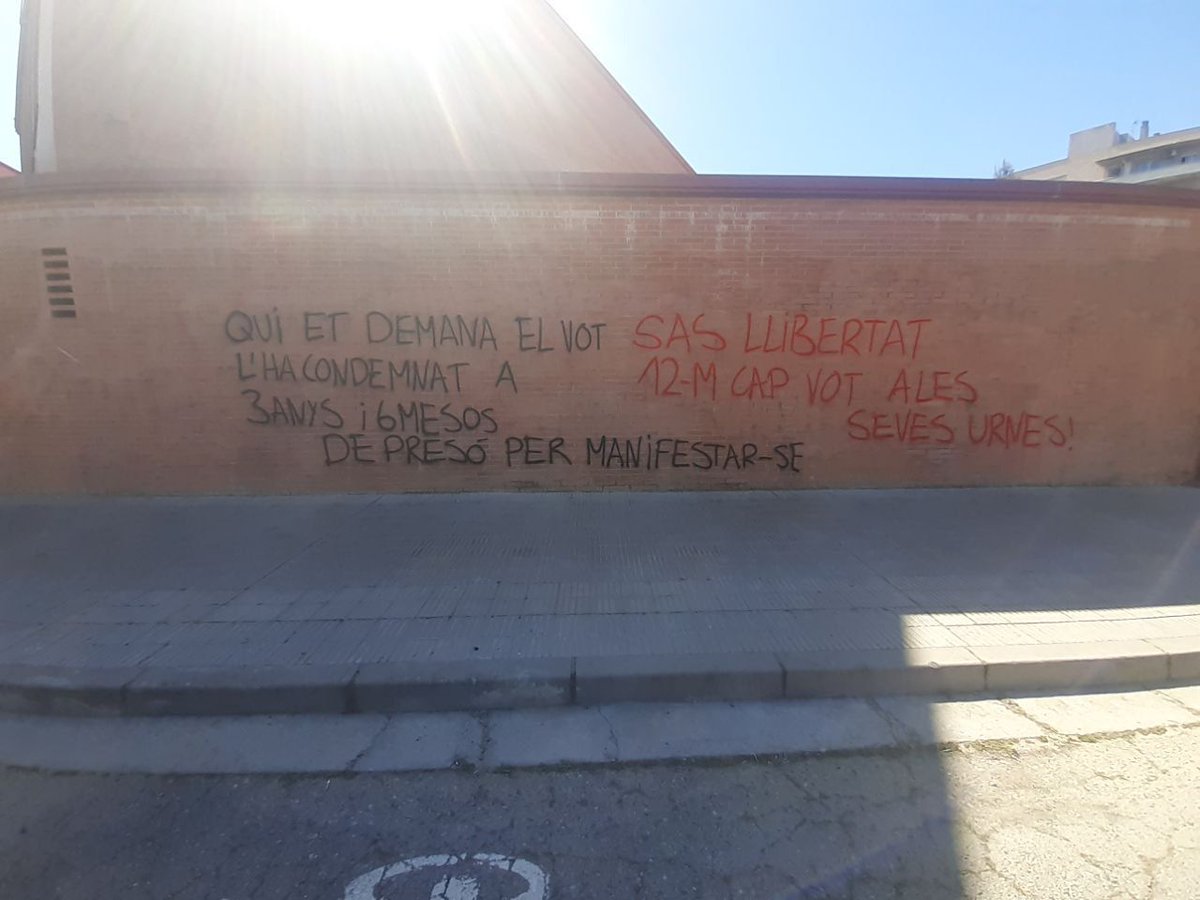 QUI ET DEMANA EL VOT
L'HA CONDEMNAT A
3 ANYS i 6 MESOS
DE PRESÓ PER MANiFESTAR-SE
SAS LLiBERTAT
12-M CAP VOT A LES
SEVES URNES!